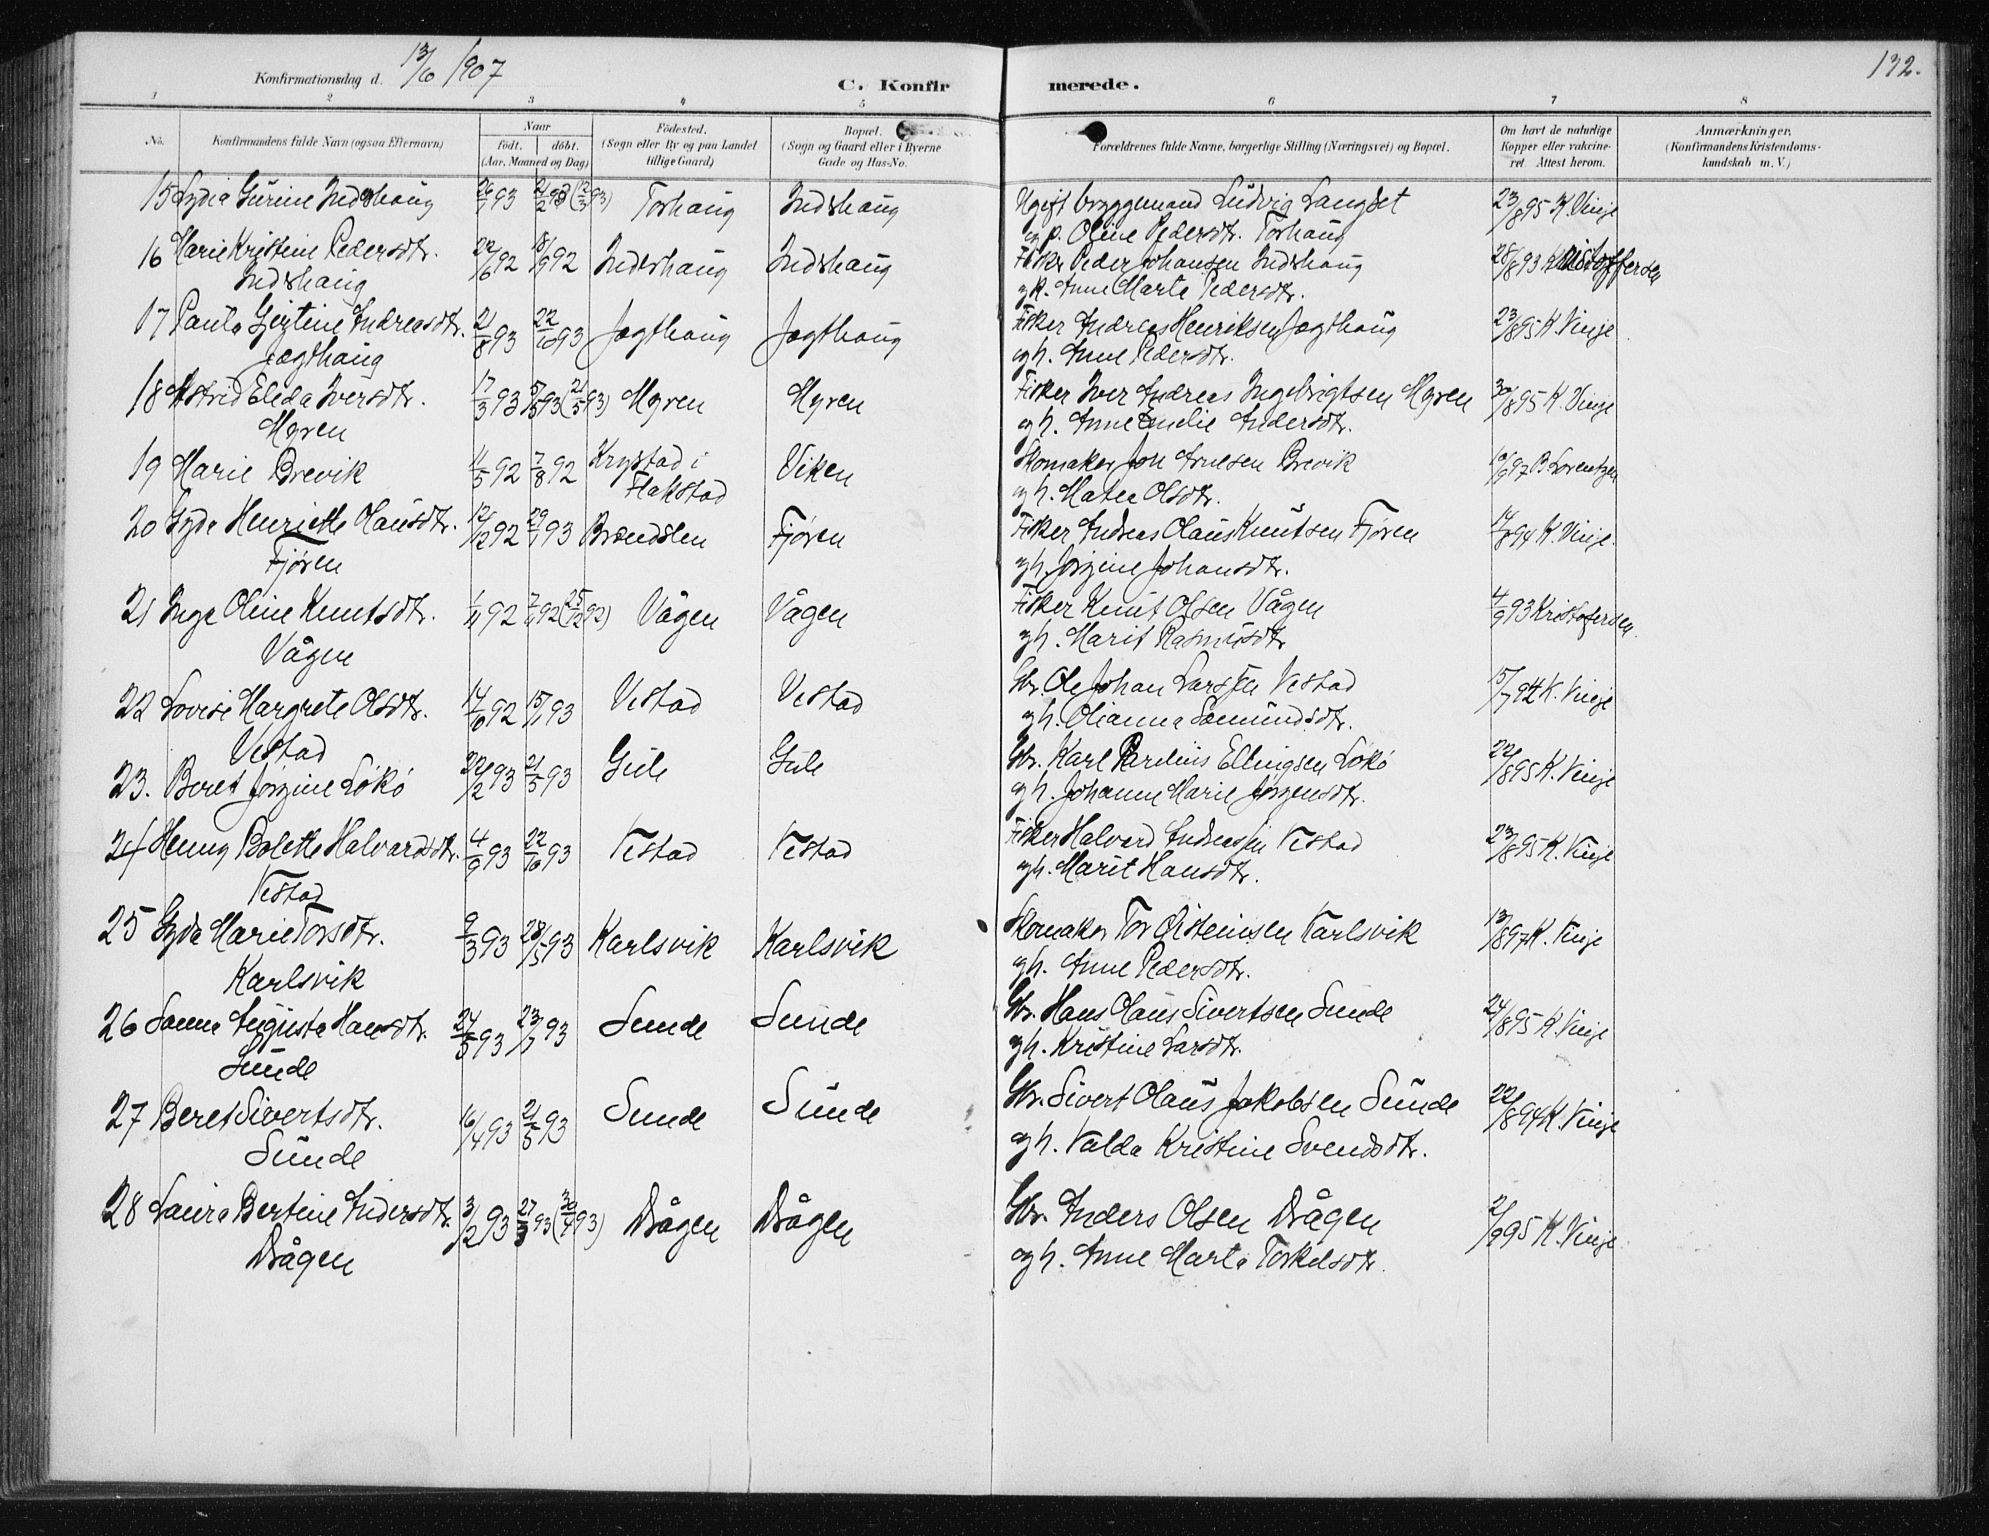 Konfirmationsdag d. 13/6 1907 C. Konfirmerede. 132.
1 2 3 4 5 6 7 8
No. Konfirmandens fulde Navn (ogsaa Efternavn) Naar født. døbt. (Aar, Maaned og Dag) Fødested. (Sogn eller By og paa Landet tillige Gaard) Bopæl. (Sogn og Gaard eller i Byerne Gade og Hus-No. Forældrenes fulde Navne, borgerlige Stilling (Næringsvei) og Bopæl. Om havt de naturlige Kopper eller vaccineret Attest herom. Anmærkninger. (Konfirmandens Kristendomskundskab m. V.)
15 Lydia Gurine Indrehaug 26/1 93 21/2 93 (12/3 93) Torhaug Indrhaug Ugift bryggemand Ludvig Langset 23/8 95 K. Vinje
og p. Oline Pedersdtr. Torhaug
16 Marie Kristine Pedersdtr. 22/6 92 18/9 92 Indrhaug Indrhaug Fisker Peder Johansen Indrhaug 28/8 93 Kristoffersen
Indrhaug og k. Anne Marta Pedersdtr.
17 Paula Gjertine Andreasdtr. 21/8 93 22/10 93 Jægthaug Jægthaug Fisker Andreas Henriksen Jægthaug 23/8 95 K. Vinje
Jægthaug og h. Anne Pedersdtr.
18 Astrid Elida Iversdtr. 17/3 93 5/5 93 (21/5 93) Myren Myren Fisker Iver Andreas Ingebrigtsen Myren 30/8 95 K. Vinje
Myren og h. Anne Emelie Andersdtr.
19 Marie Brevik 11/5 92 7/8 92 Krystad i Flakstad Viken Skomaker Jon Arnesen Brevik 10/9 97 B. Lorentzen
og h. Matea Olsdtr.
20 Gyda Henriette Olausdtr. 12/12 92 29/1 93 Brændslen Fjøren Fisker Andreas Olaus Knutsen Fjøren 17/8 94 K. Vinje.
Fjøren og h. Jørgine Johansdtr.
21 Inga Oline Knutsdtr. 1/11 92 7/11 92 (25/12 92) Vågen Vågen Fisker Knut Olsen Vågen 4/9 93 Kristofersen.
Vågen og h. Marit Rasmusdtr
22 Lovise Margrete Olsdtr. 14/10 92 15/1 93 Vestad Vestad Gbr. Ole Johan Larssen Vestad 15/7 94 K. Vinje
Vestad og h. Olianna Sæmundsdtr.
23. Beret Jørgine Løkø 22/2 93 21/5 93 Gule Gule Gbr. Karl Pardius Ellingsen Løkø 22/8 95 K. Vinje
og h. Johanne Marie Jørgensdtr.
24 Henny Bolette Halvardsdtr. 4/9 93 22/10 93 Vestad Vestad Fisker Halvard Andreassen Vestad 23/8 95 K. Vinje
Vestad og h. Marit Hansdtr.
25 Gyda Marie Torsdtr. 9/3 93 28/5 93 Karlsvik Karlsvik Skomaker Tor Østeinsen Karlsvik 13/8 97 K. Vinje
Karlsvik og h. Anne Pedersdtr.
26 Sanna Augusta Hansdtr. 24/5 93 23/7 93 Sunde Sunde Gbr. Hans Olaus Sivertsen Sunde 24/8 95 K. Vinje
Sunde og h. Kristine Larsdtr.
27 Beret Sivertsdtr. 16/4 93 21/5 93 Sunde Sunde Gbr. Sivert Olaus Jakobsen Sunde 22/8 94 K. Vinje
Sunde og h. Valda Kristine Svendsdtr.
28 Laura Bertine Andersdtr. 3/2 93 27/3 93 (30/4 93) Drågen Drågen Gbr. Anders Olsen Drågen 2/9 95 K. Vinje
Drågen og h. Anne Marta Torkelsdtr.